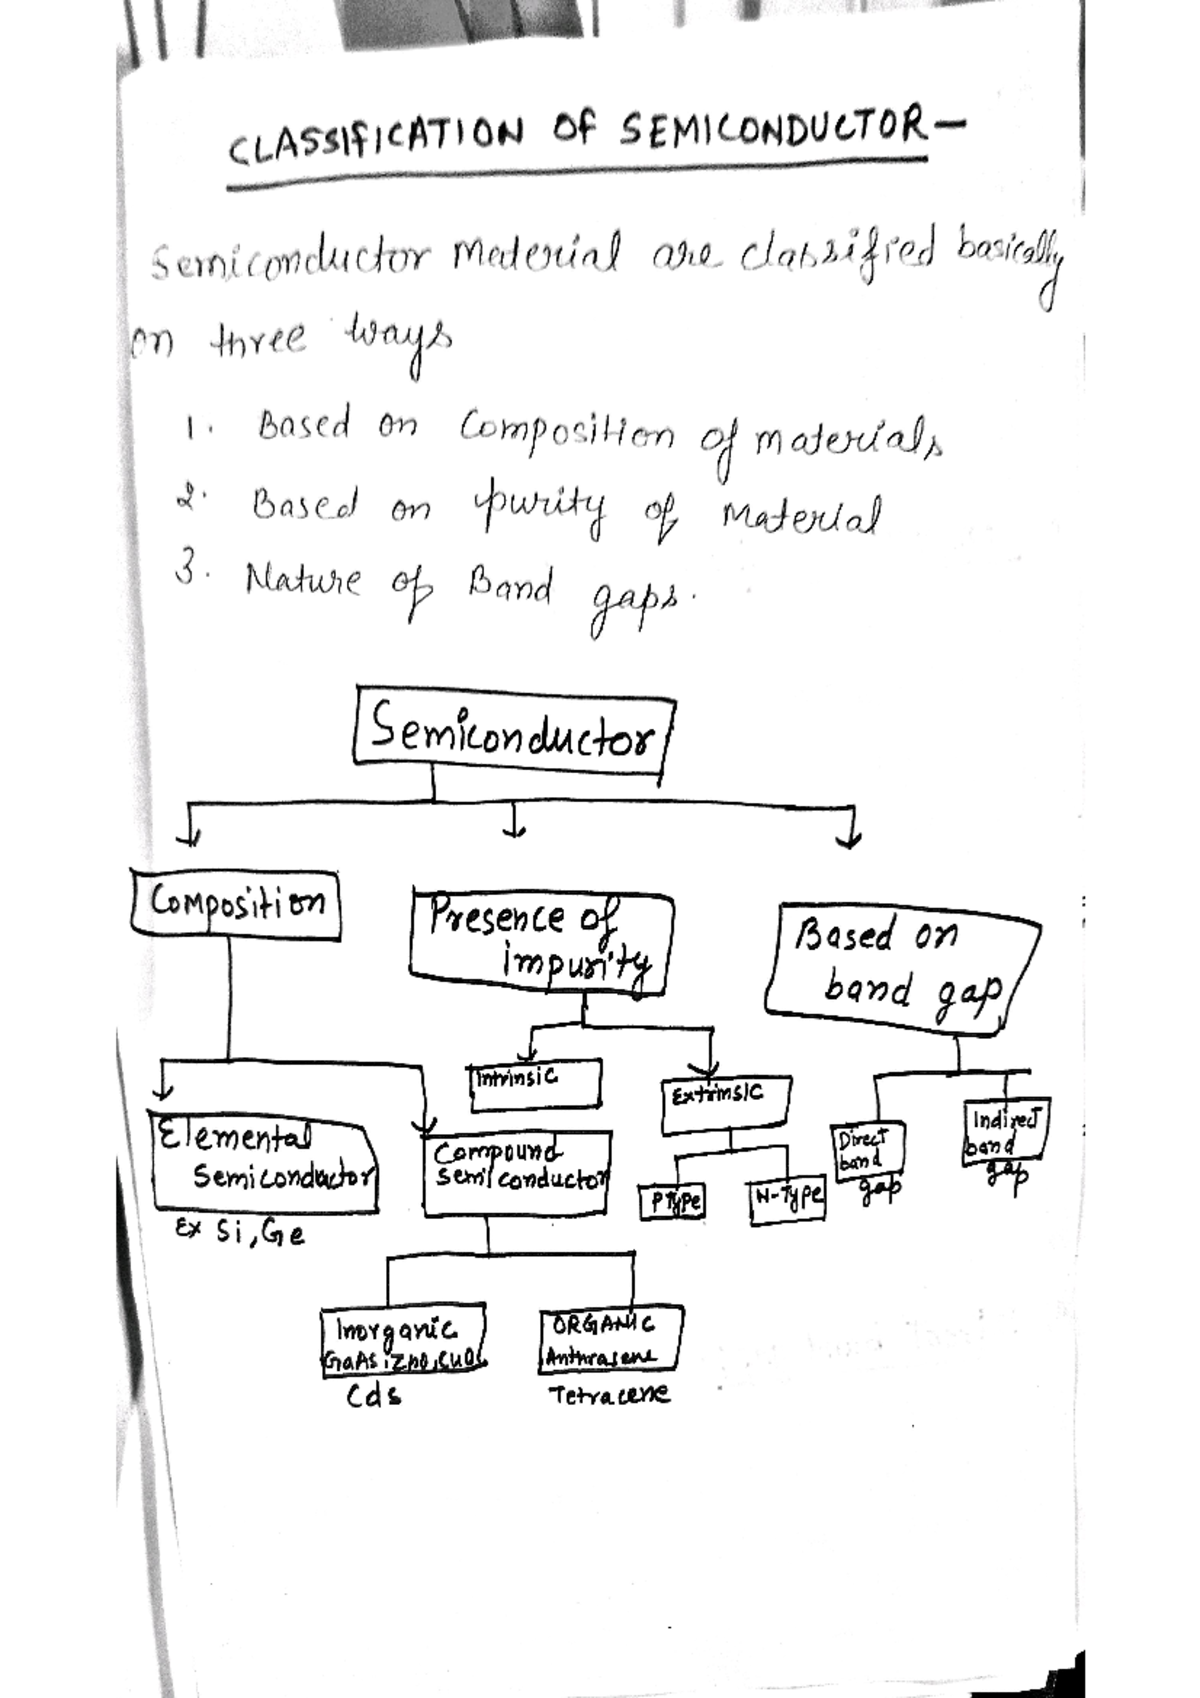 CLASSIFICATION OF SEMICONDUCTOR-
Semiconductor Material are classified basically
on three ways
1. Based on Composition of materials
2. Based on purity of Material
3. Nature of Band gaps.
Semiconductor
Composition
Presence of
impurity
Based on
band gap
Intrinsic
Extrinsic
Elemental
Semiconductor
Ex Si, Ge
Compound
Semiconductor
P Type
N-Type
Direct
band
gap
Indirect
band
gap
Inorganic
GaAs, ZnO,
Cds
ORGANIC
Anthrasene
Tetracene